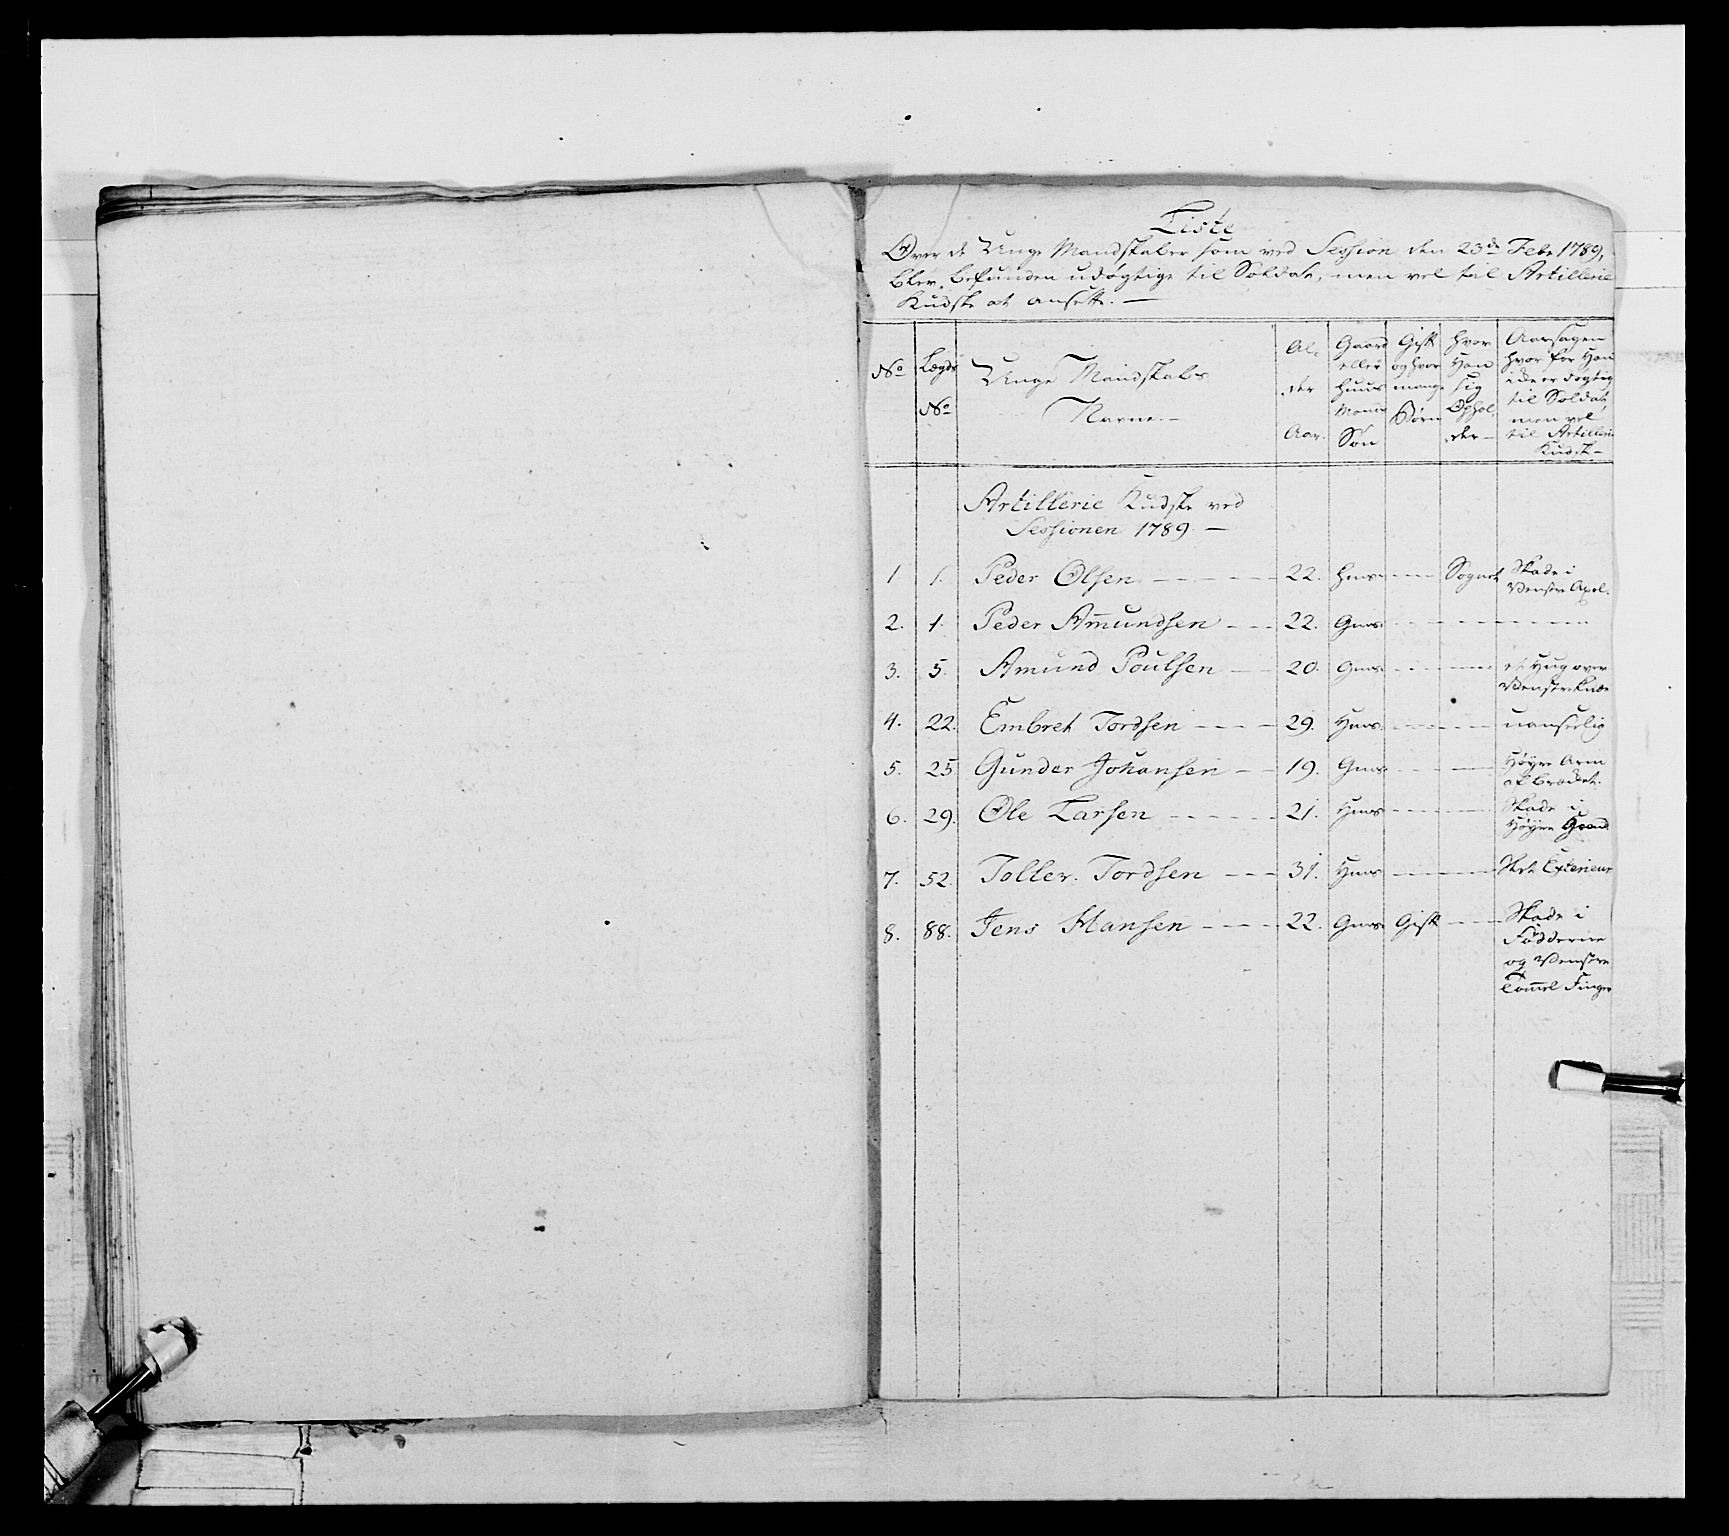 Liste
Over de Unge Mandskaber som ved Session den 23de Febr 1789,
blev befunden udøgtige til Soldat, men vel til Artillerie
Kudske at ansette. —
No
Lægds No
Unge Mandskabs Navne. —
Alder Aar.
Gaard eller Huus Mands Søn
Gift og hvor mange Børn
hvor Han sig Opholder —
Aarsagen hvor for Han icke er døgtig til Soldat, men vel til Artillerie Kudsk —
Artillerie Kudske ved
Sessionen 1789 —
1 1. Peder Olsen — — — 22. Hms. — — Sognet Skade i Venstre Axel.
2. 1. Peder Am̅undsen — — 22. Gms. — — —
3. 5. Amund Poulsen — 20. Gms. — — et Hug over Venstre Knæe
4. 22. Embret Tordsen — — — 29. Hms. — — uanseelig
5. 25 Gunder Johansen — 19. Gms. — — Høyre Arm afbrækket.
6. 29. Ole Larsen — — — 21. Hms. — — Skade i Høyre Haand
7. 52. Toller Tordsen — — 31. Hms. — — Slet Exterieur
8. 88. Jens Hansen — — — 22. Gms. Gift — Skade i
Fødderne
og Venstre
Tom̅el Finger